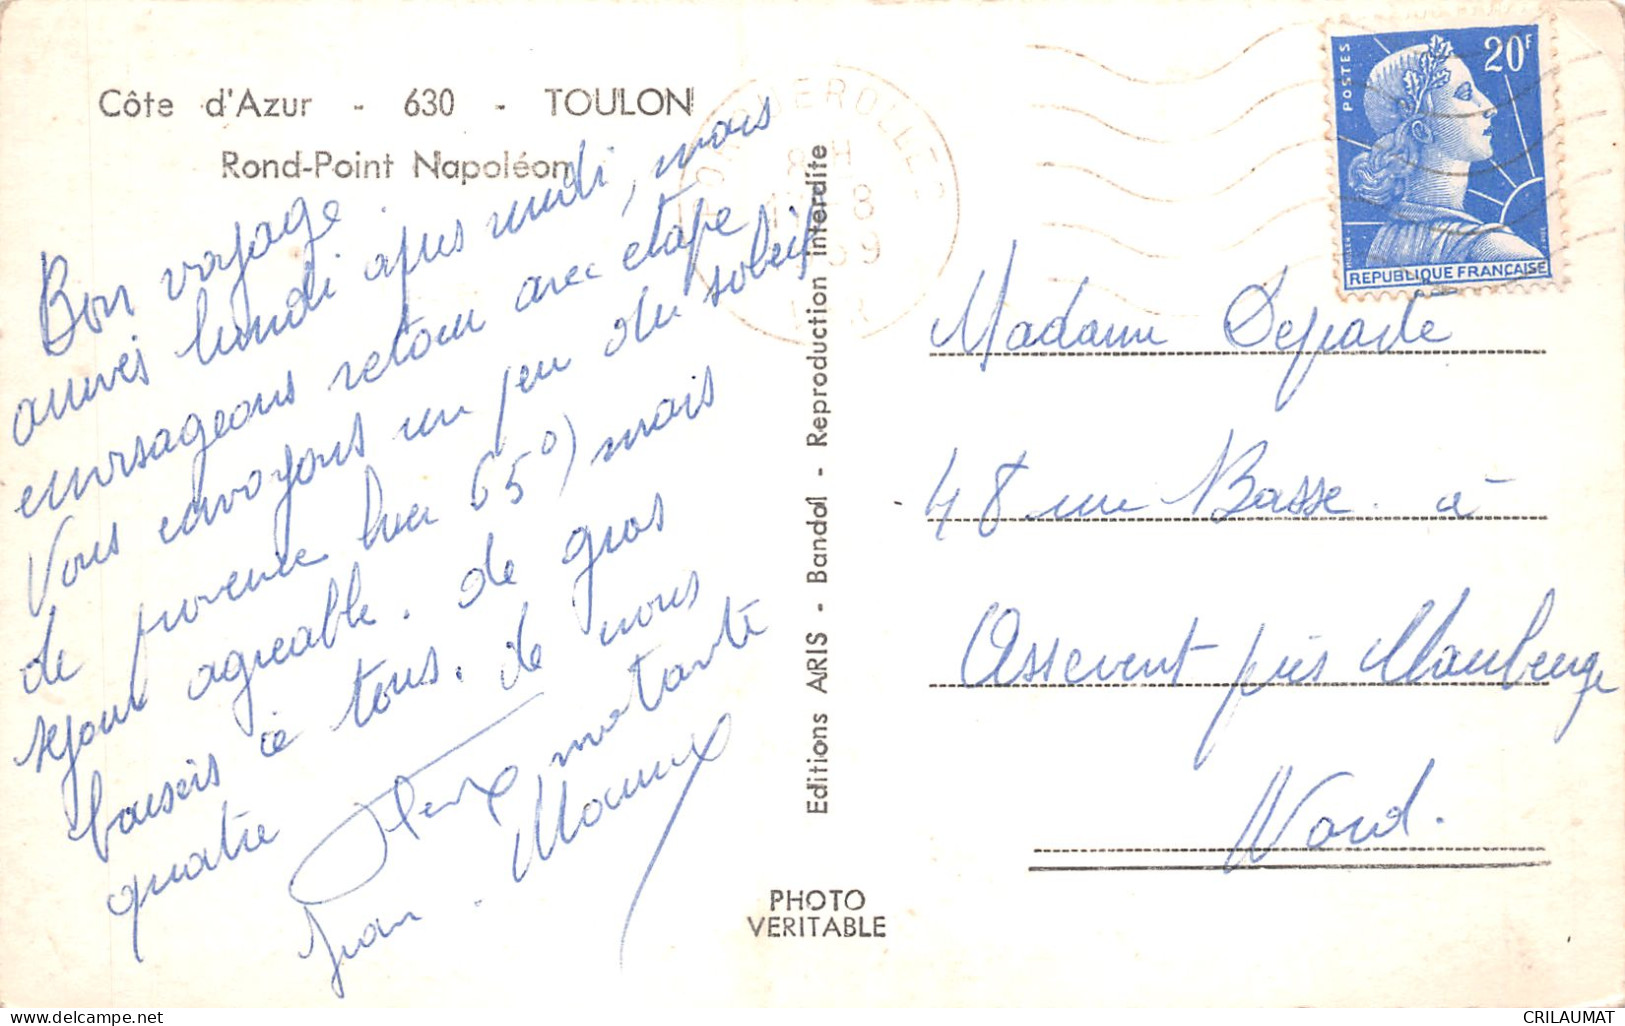 Côte d'Azur - 630 - TOULON
Rond-Point Napoléon
Bon voyage
arrivés lundi après midi, mais
envisageons retour avec étape
Vous envoyons un peu du soleil
de provence hier 65°) mais
séjour agréable. de gros
baisers à tous. de nous
quatre
Jean
Editions ARIS - Bandol - Reproduction interdite
PHOTO
VERITABLE
PORQUEROLLES
8 H
8
VAR
POSTES
20F
REPUBLIQUE FRANÇAISE
Madame
48 rue Basse à
Assevent près Maubeuge
Nord.
CRILAUMAT